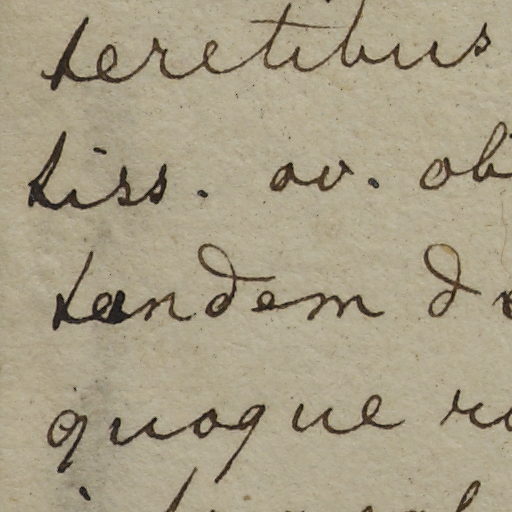 teretibus
tiss. ov. ob
tandem d
quoque